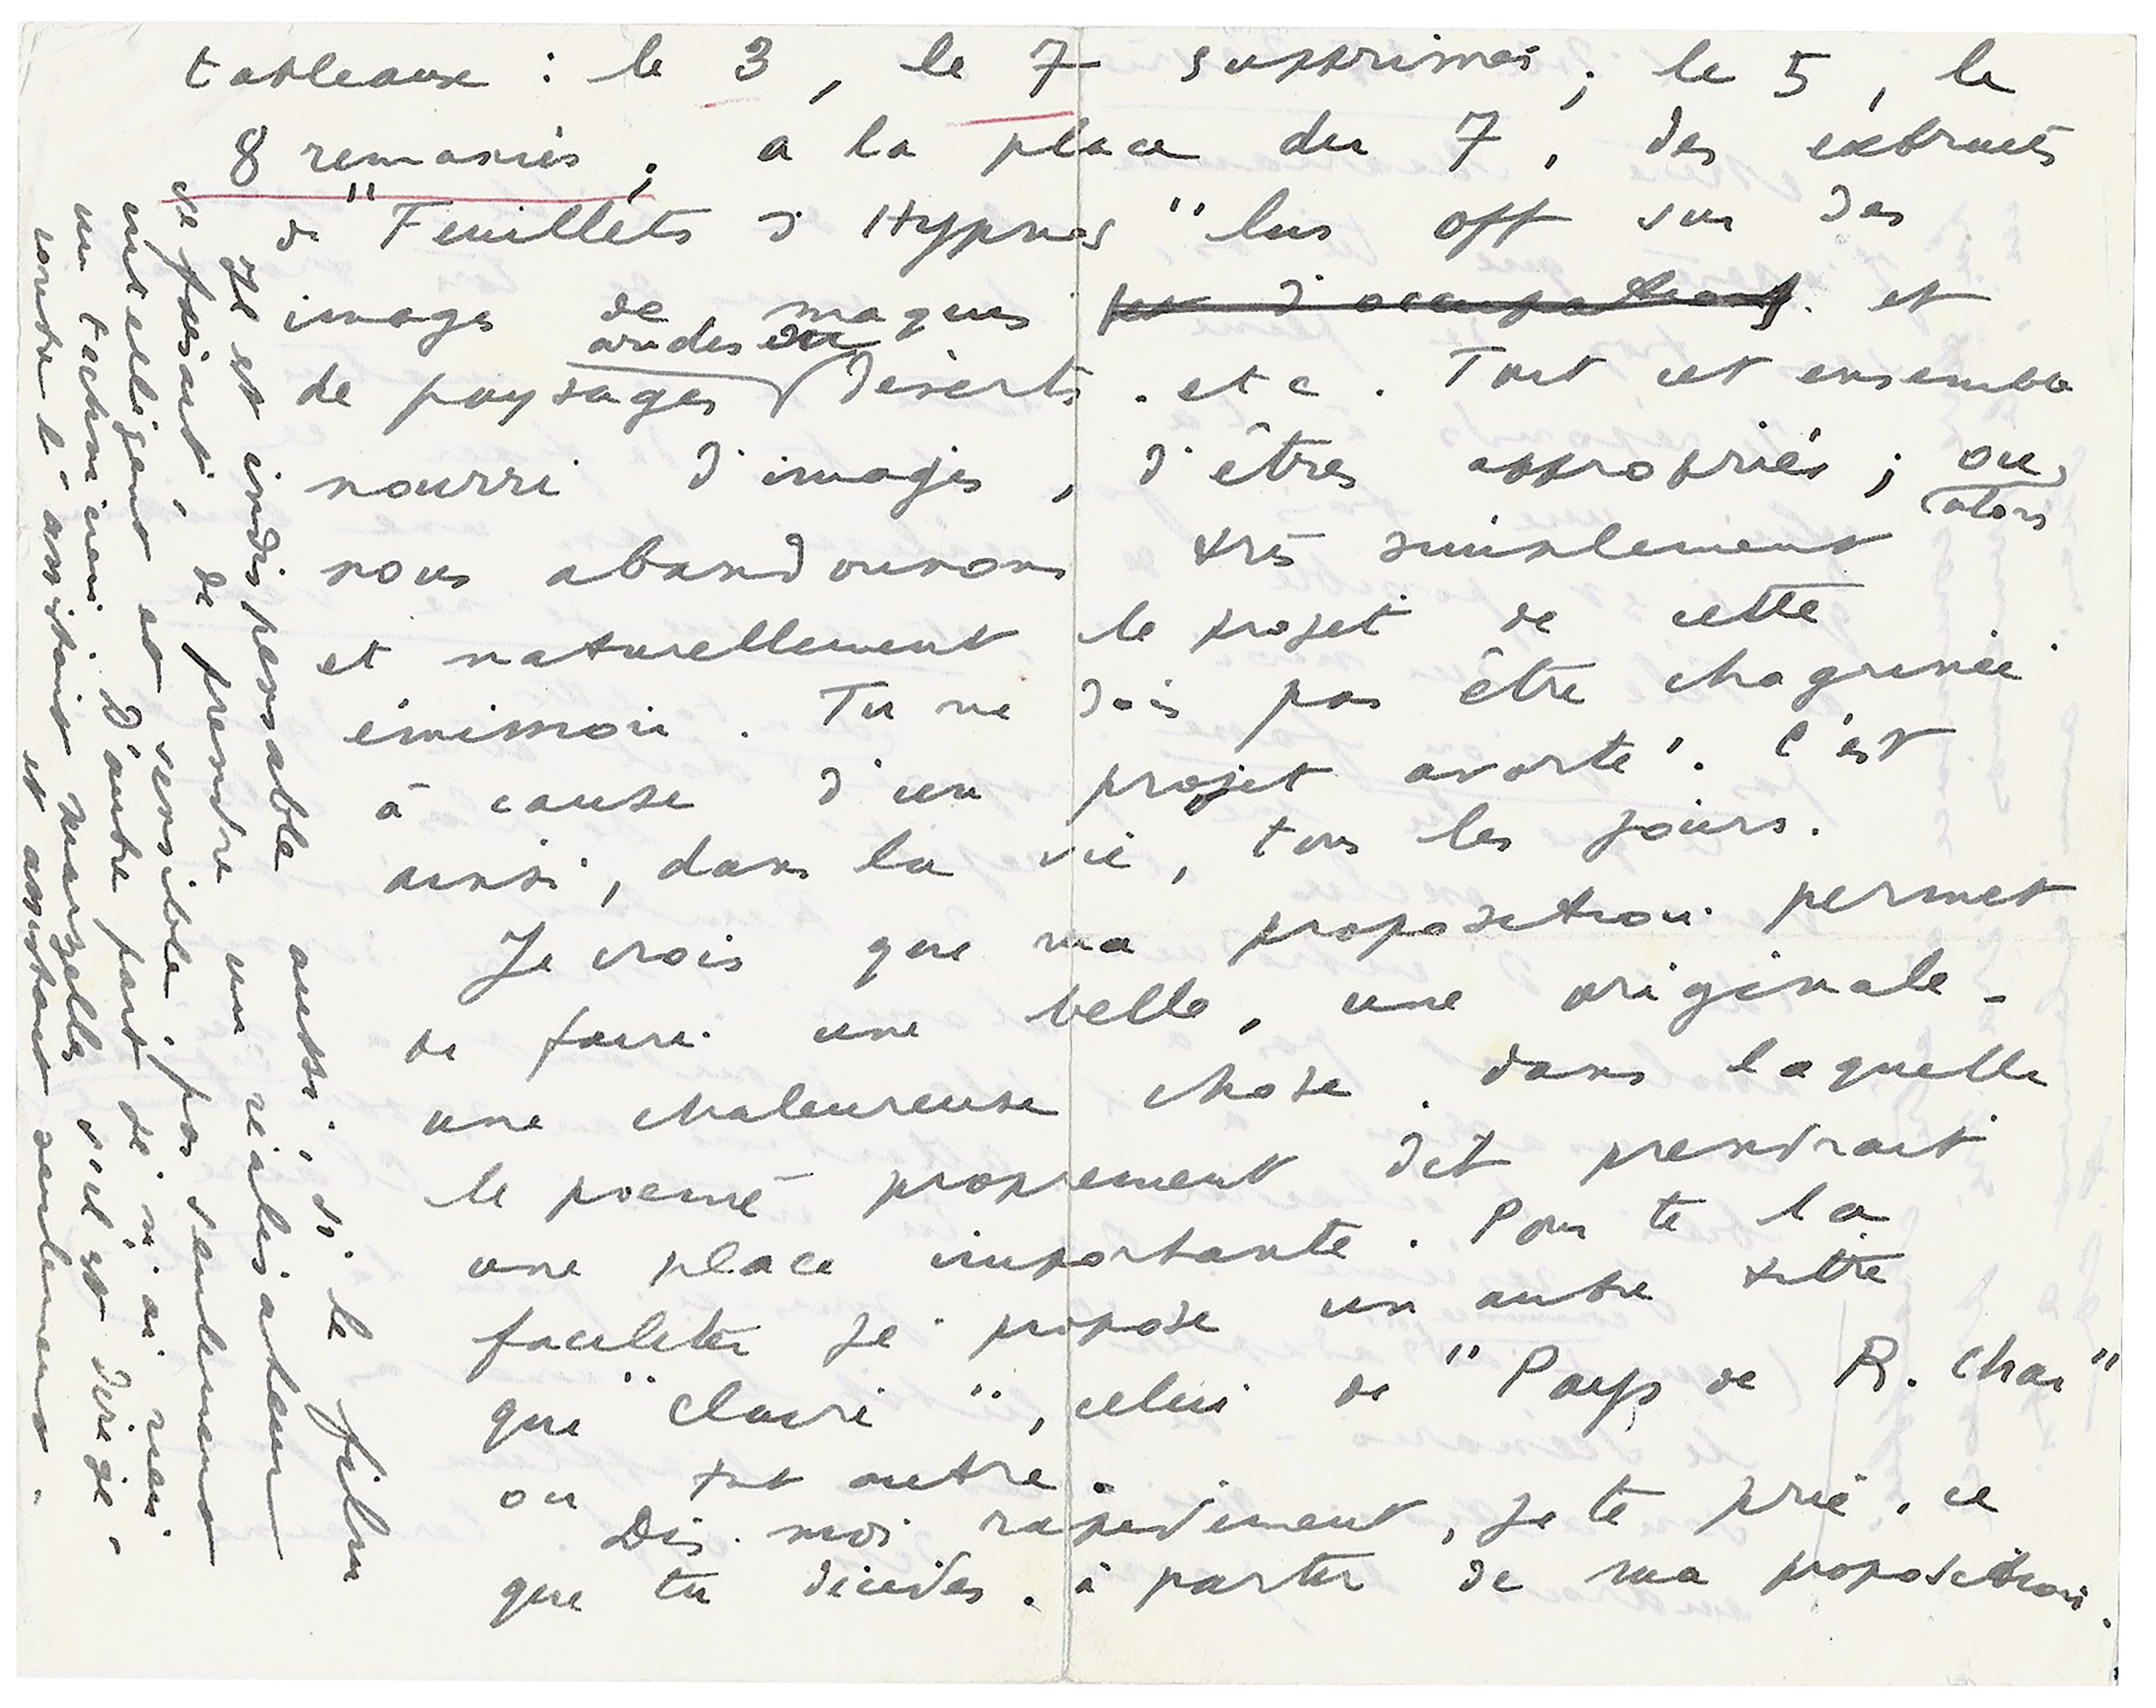 tableaux : le 3, le 7 supprimés ; le 5, le
8 remaniés ; a la place du 7, des extraits
de "Feuillets d'Hypnos" lus off sur des
images de maquis et
de paysages arides ou déserts. etc. Tout cet ensemble
nourri d'images, d'êtres appropriés ; ou
alors
nous abandonnons très simplement
et naturellement le projet de cette
émission. Tu ne dois pas être chagrinée
à cause d'un projet avorté. C'est
ainsi, dans la vie, tous les jours.
Je crois que ma proposition permet
de faire une belle, une originale -
une chaleureuse chose. dans laquelle
le poème proprement dit prendrait
une place importante. Pour te la
faciliter je propose un autre titre
que "Claire", celui de "Pays de R. Char"
ou tout autre.
Dis-moi rapidement, je te prie, ce
que tu décides. à partir de ma proposition.
Il est indispensable aussi, si le film
se faisait, de prendre un réalisateur
intelligent et sensible, pas seulement
un technicien. D'autre part je n'ai rien
contre l'assistant s'il est dirigé,
et assistant seulement.